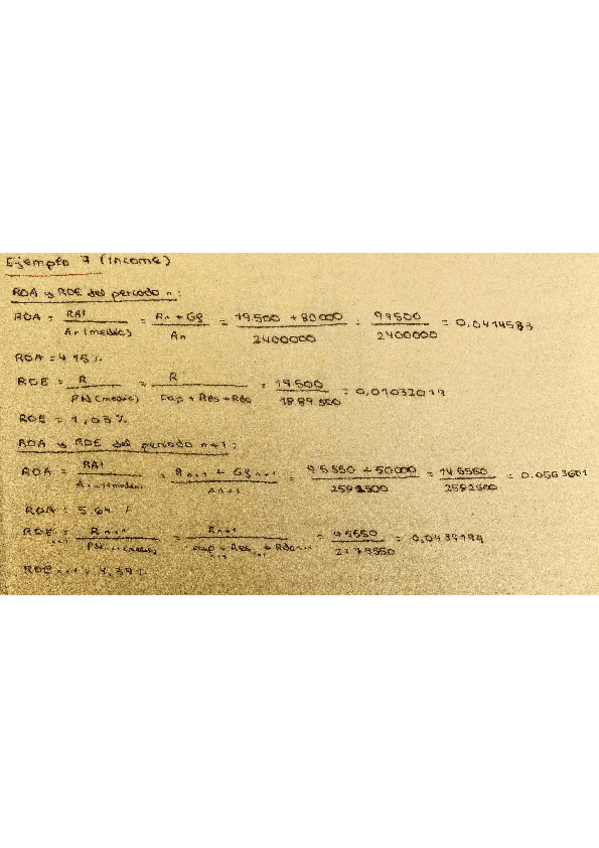 Ejemplo 7 (Income)
ROA y ROE del periodo n:
ROA = RAI / An (medio) = Rn + Gg / An = 19.500 + 80000 / 2400000 = 99500 / 2400000 = 0,0414583
ROA = 4,15%
ROE = R / PN (medio) = R / Cap + Res + Rdo = 19.500 / 1889.500 = 0,01032019
ROE = 1,03%
ROA y ROE del periodo n+1:
ROA = RAI / = Rn+1 + Gg n+1 / An+1 = 95550 + 50000 / 2592500 = 145550 / 2592500 = 0.0563601
ROA = 5.64 %
ROE = Rn+1 / = Rn+1 / Cap + Res + Rdo = 95550 / 2179550 =
ROE n+1 = 4,39%